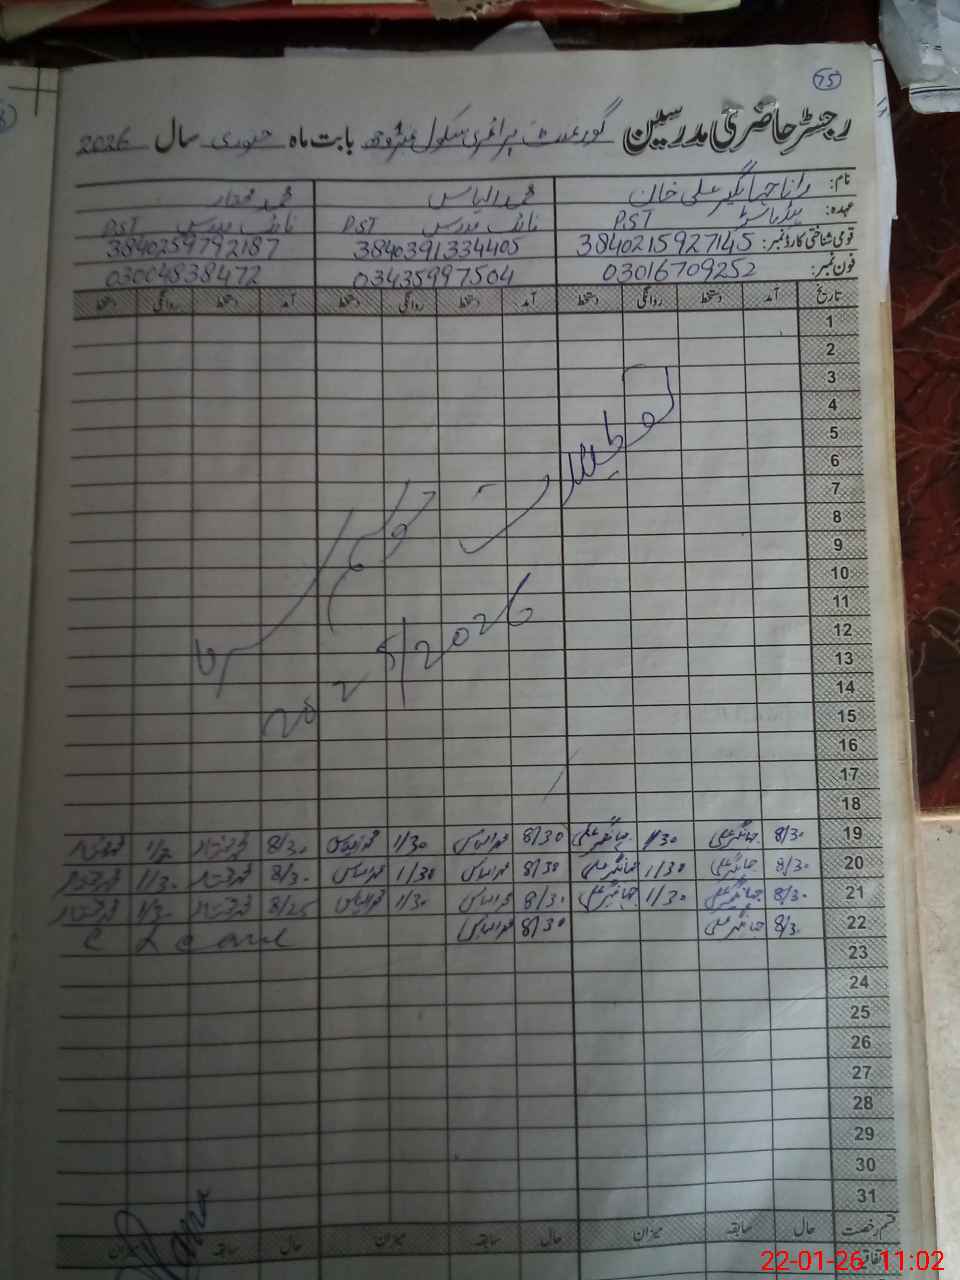 75
رجسٹر حاضری مدرسین گورنمنٹ پرائمری سکول بابت ماہ جنوری سال 2026
نام: رانا جہانگیر علی خان محمد الیاس محمد مختار
عہدہ: ہیڈ ماسٹر P.ST نائب مدرس P.ST نائب مدرس P.ST
قومی شناختی کارڈ نمبر: 3840215927145 3840391334405 3840259792187
فون نمبر: 03016709252 03435997504 03004838472
تاریخ آمد دستخط روانگی دستخط آمد دستخط روانگی دستخط آمد دستخط روانگی دستخط
1
2
3
4
5
6
7
8
9
10
11
12
13
14
15
16
17
18
تعطیلات موسم سرما
19 8/30 جہانگیر علی 1/30 جہانگیر علی 8/30 محمد الیاس 1/30 محمد الیاس 8/30 محمد مختار محمد مختار
20 8/30 جہانگیر علی 1/30 جہانگیر علی 8/30 محمد الیاس 1/30 محمد الیاس 8/30 محمد مختار 1/30 محمد مختار
21 8/30 جہانگیر علی 1/30 جہانگیر علی 8/30 محمد الیاس 1/30 محمد الیاس 8/25 محمد مختار 1/30 محمد مختار
22 8/30 جہانگیر علی 8/30 محمد الیاس C Leave
23
24
25
26
27
28
29
30
31
قسم رخصت حال سابقہ میزان حال سابقہ میزان حال سابقہ میزان
22-01-26 11:02